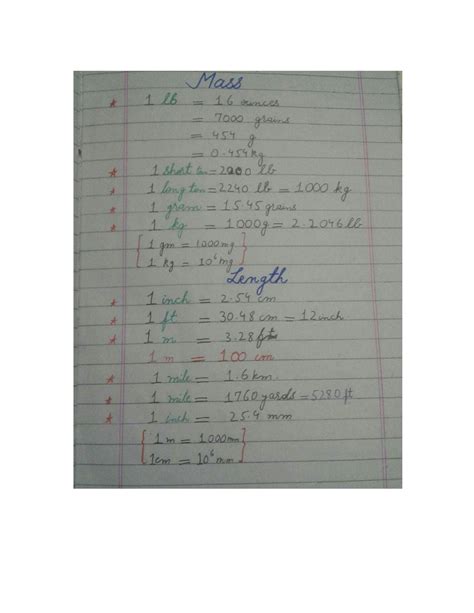 Mass
* 1 lb = 16 ounces
= 7000 grains
= 454 g
= 0.454 kg
* 1 short ton = 2000 lb
* 1 long ton = 2240 lb = 1000 kg
* 1 gram = 15.45 grains
* 1 kg = 1000g = 2.2046 lb
[ 1 gm = 1000mg ]
[ 1 kg = 10⁶ mg ]
Length
* 1 inch = 2.54 cm
* 1 ft = 30.48 cm = 12 inch
* 1 m = 3.28 ft
1 m = 100 cm
* 1 mile = 1.6 km.
* 1 mile = 1760 yards = 5280 ft
* 1 inch = 25.4 mm
[ 1 m = 1000 mm ]
[ 1cm = 10⁶ mm ]